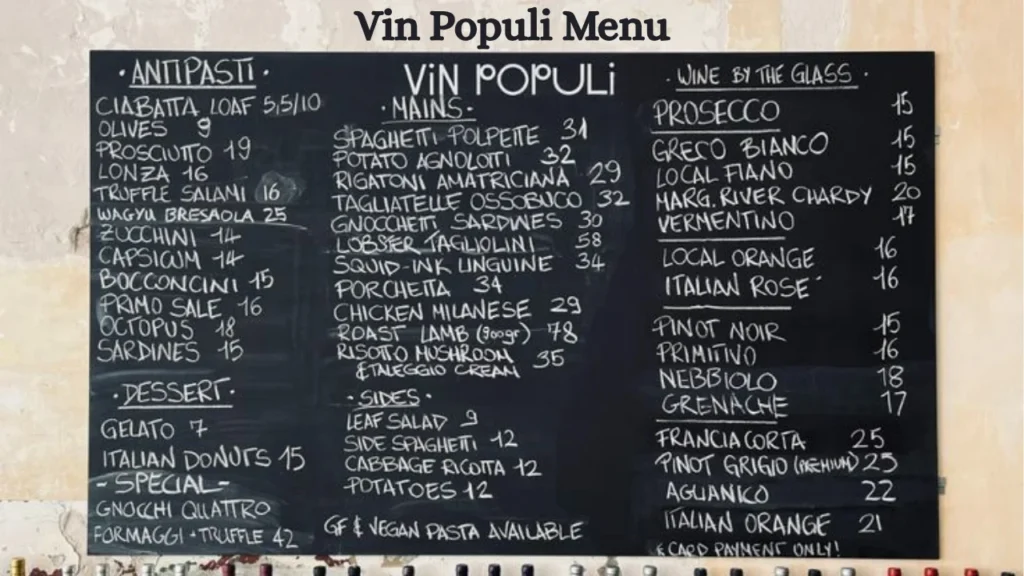 Vin Populi Menu
· ANTIPASTI ·
CIABATTA LOAF 5,5/10
OLIVES 9
PROSCIUTTO 19
LONZA 16
TRUFFLE SALAMI 16
WAGYU BRESAOLA 25
ZUCCHINI 14
CAPSICUM 14
BOCCONCINI 15
PRIMO SALE 16
OCTOPUS 18
SARDINES 15
· DESSERT ·
GELATO 7
ITALIAN DONUTS 15
- SPECIAL -
GNOCCHI QUATTRO
FORMAGGI + TRUFFLE 42
ViN POPULi
· MAINS ·
SPAGHETTI POLPETTE 31
POTATO AGNOLOTTI 32
RIGATONI AMATRICIANA 29
TAGLIATELLE OSSOBUCO 32
GNOCCHETTI SARDINES 30
LOBSTER TAGLIOLINI 58
SQUID-INK LINGUINE 34
PORCHETTA 34
CHICKEN MILANESE 29
ROAST LAMB (900gr) 78
RISOTTO MUSHROOM 35
& TALEGGIO CREAM
· SIDES ·
LEAF SALAD 9
SIDE SPAGHETTI 12
CABBAGE RICOTTA 12
POTATOES 12
GF & VEGAN PASTA AVAILABLE
· WINE BY THE GLASS ·
PROSECCO 15
GRECO BIANCO 15
LOCAL FIANO 15
MARG. RIVER CHARDY 20
VERMENTINO 17
LOCAL ORANGE 16
ITALIAN ROSE´ 16
PINOT NOIR 15
PRIMITIVO 16
NEBBIOLO 18
GRENACHE 17
FRANCIACORTA 25
PINOT GRIGIO (PREMIUM) 25
AGLIANICO 22
ITALIAN ORANGE 21
& CARD PAYMENT ONLY!